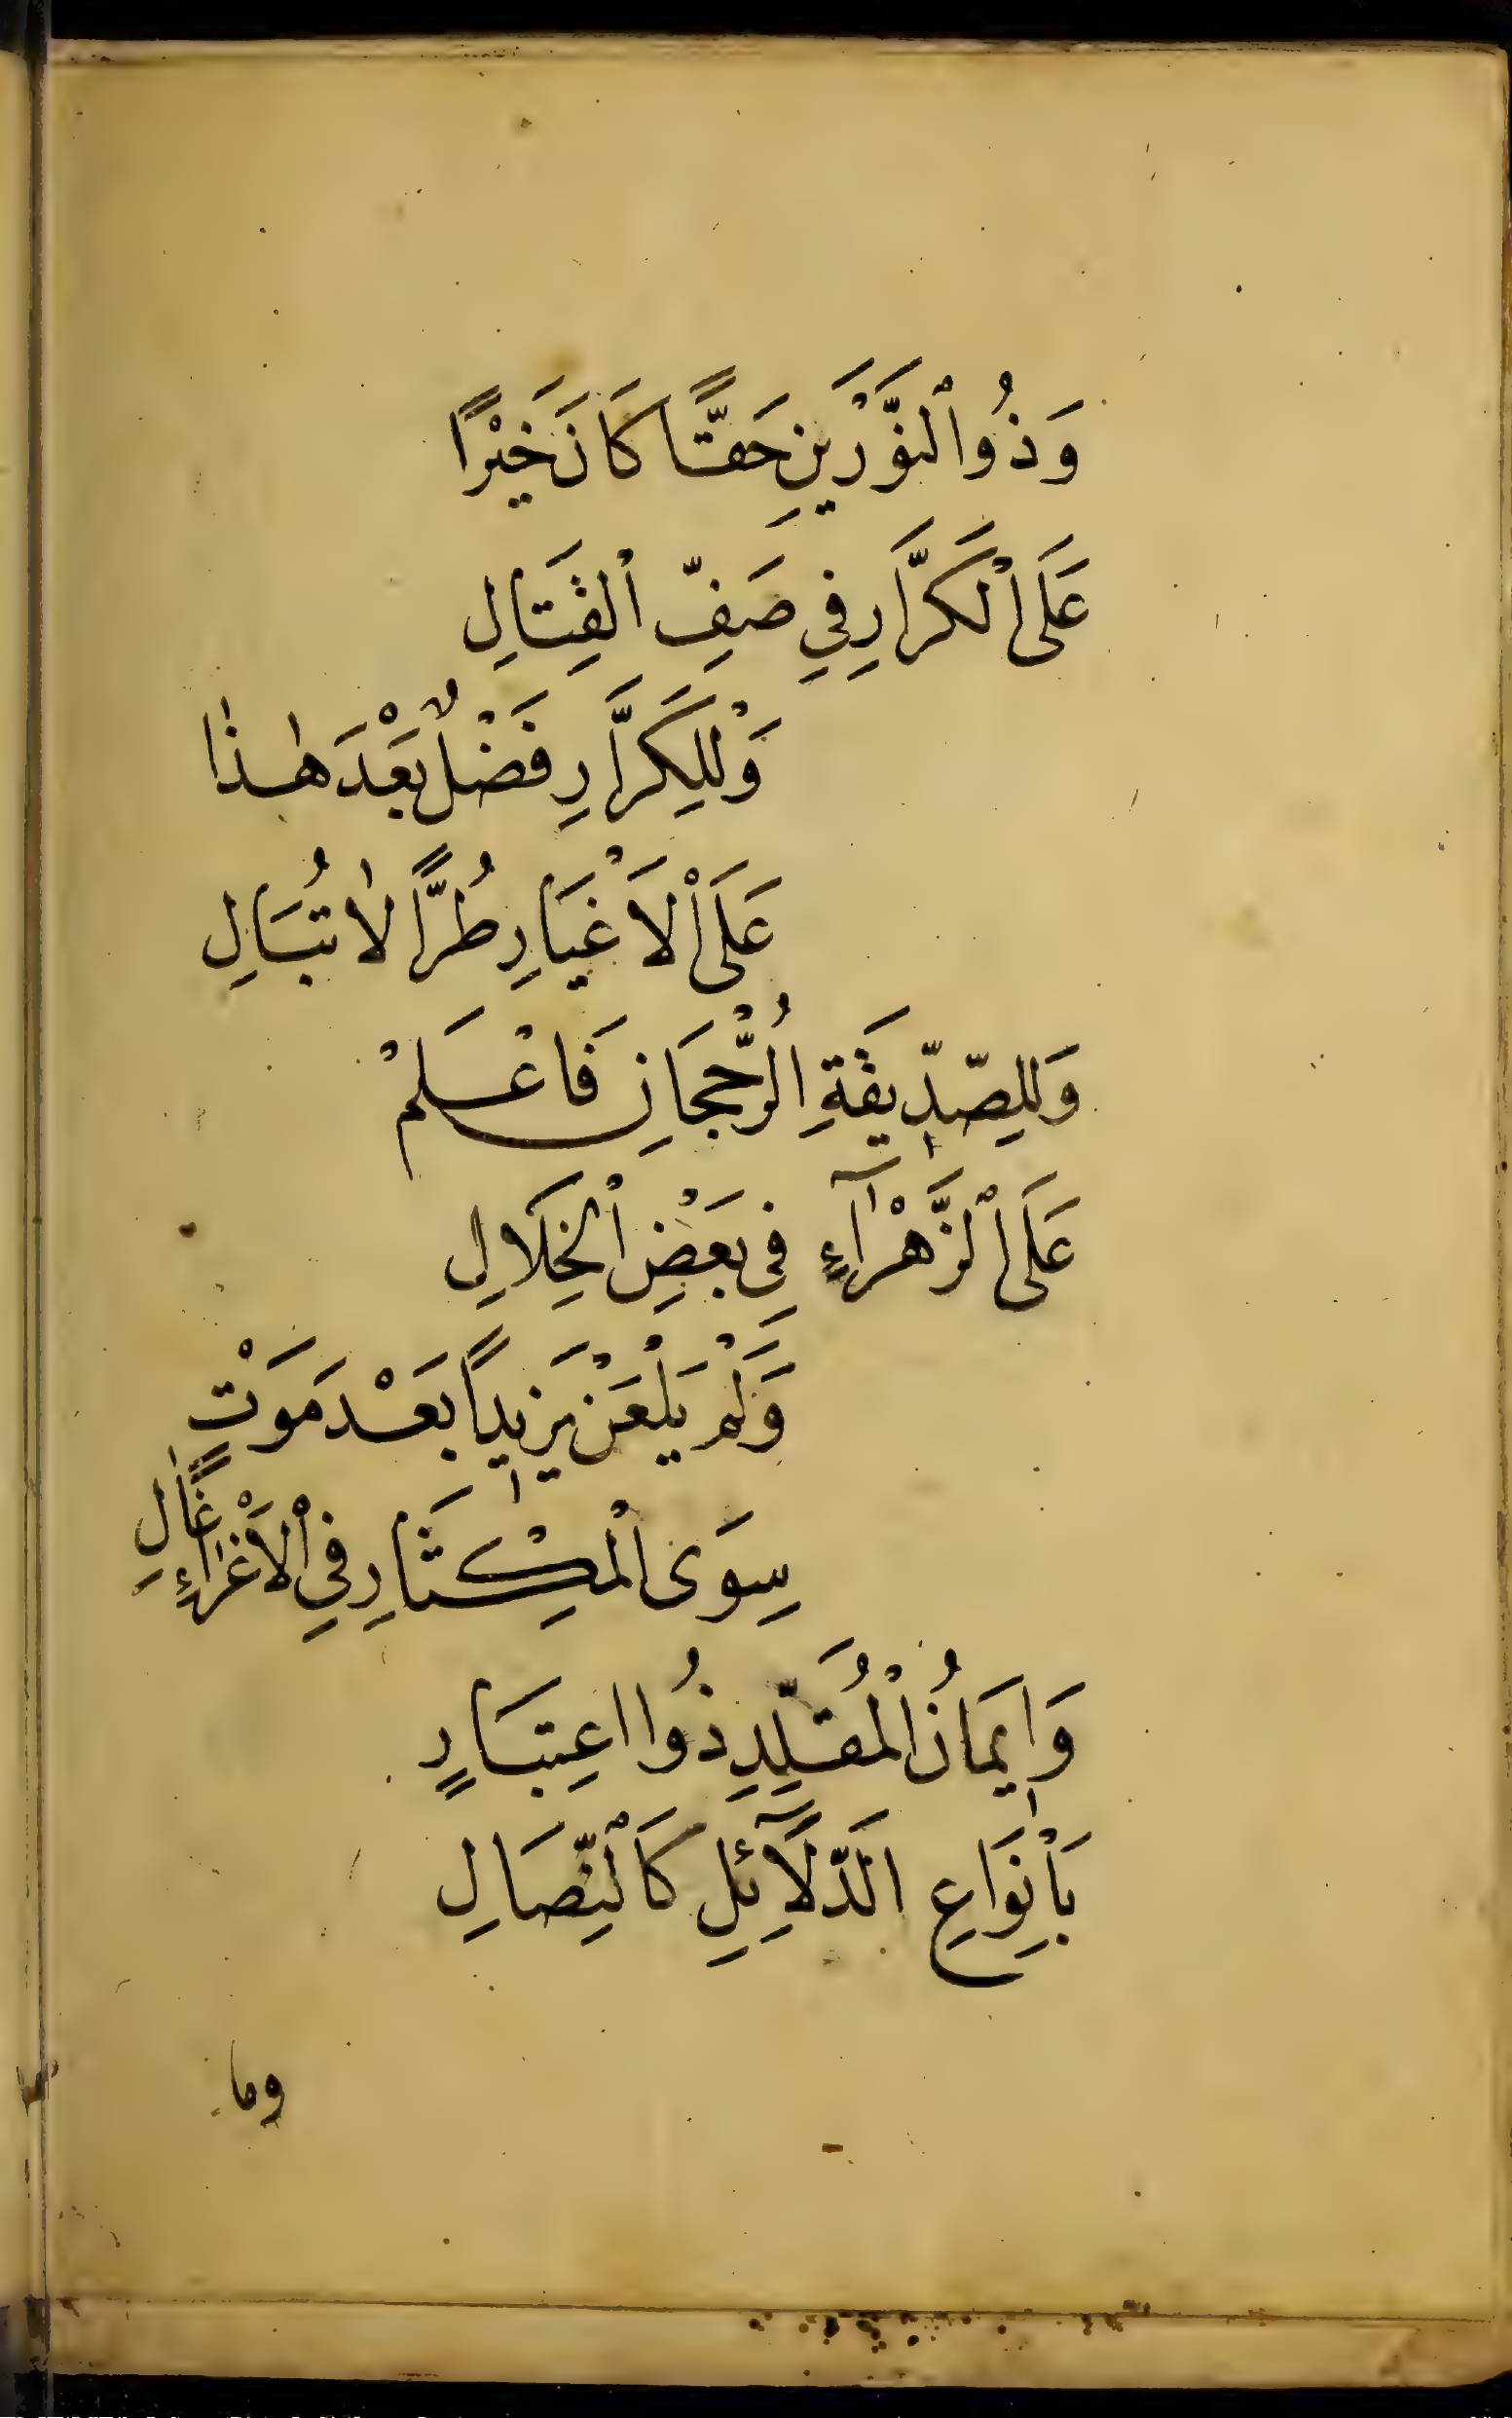 وَذُو ٱلنُّوْرَيْنِ حَقًّا كَانَ خَيْرًا
عَلَى ٱلْكَرَّارِ فِي صَفِّ ٱلْقِتَالِ
وَلِلْكَرَّارِ فَضْلٌ بَعْدَ هٰذَا
عَلَى ٱلْاَغْيَارِ طُرًّا لَا تُبَالِ
وَلِلصِّدِّيقَةِ الرُّجْحَانِ فَاعْلَمْ
عَلَى ٱلزَّهْرَآءِ فِى بَعْضِ ٱلْخِلَالِ
وَلَمْ يَلْعَنْ يَزِيدًا بَعْدَ مَوْتٍ
سِوَى ٱلْمِكْثَارِ فِي ٱلْاَغْرَاءِ غَالِ
وَاِيمَانُ ٱلْمُقَلِّدِ ذُوا اعِتبَارٍ
بَاَنْوَاعِ الَدَّلَآئِلِ كَٱلنِّصَالِ
وما